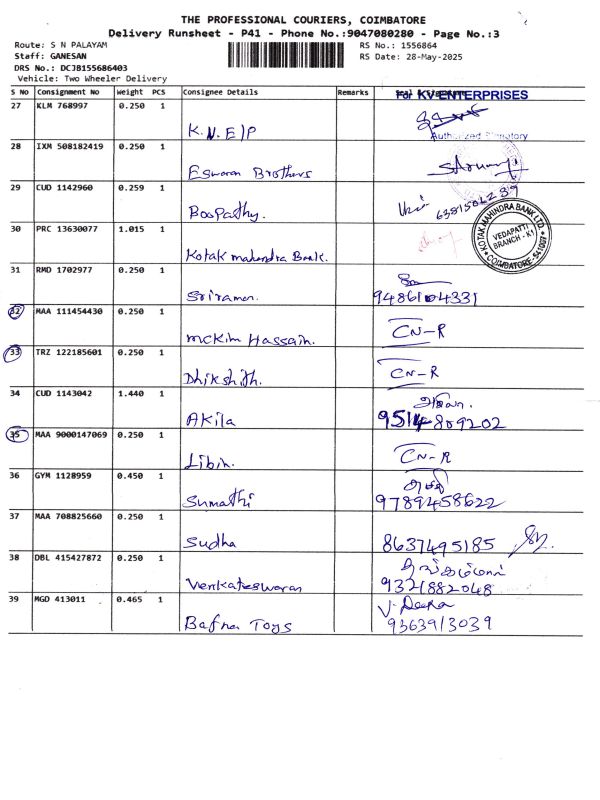 THE PROFESSIONAL COURIERS, COIMBATORE
Delivery Runsheet - P41 - Phone No.:9047080280 - Page No.:3
Route: S N PALAYAM
RS No.: 1556864
Staff: GANESAN
RS Date: 28-May-2025
DRS No.: DC3B155686403
Vehicle: Two Wheeler Delivery
S No Consignment No Weight PCS Consignee Details Remarks
For KV ENTERPRISES
27 KLM 768997 0.250 1
K.N.E/P
Authorized Signatory
28 IXM 508182419 0.250 1
Eswaran Brothers
29 CUD 1142960 0.259 1
Boopathy.
30 PRC 13630077 1.015 1
Kotak mahendra Bank.
KOTAK MAHINDRA BANK LTD.
VEDAPATTI
BRANCH - K1
COIMBATORE-641007
31 RMD 1702977 0.250 1
Sriraman.
9486104331
32 MAA 111454430 0.250 1
McKim Hassain.
CN-R
33 TRZ 122185601 0.250 1
Dhikshith.
CN-R
34 CUD 1143042 1.440 1
அகிலா.
Akila
9514809202
35 MAA 9000147069 0.250 1
Libin.
CN-R
36 GYM 1128959 0.450 1
Sumathi
9789458622
37 MAA 708825660 0.250 1
Sudha
8637495185
38 DBL 415427872 0.250 1
Venkateswaran
9321882048
39 MGD 413011 0.465 1
V. Deepa
Bafna Toys
9363913039